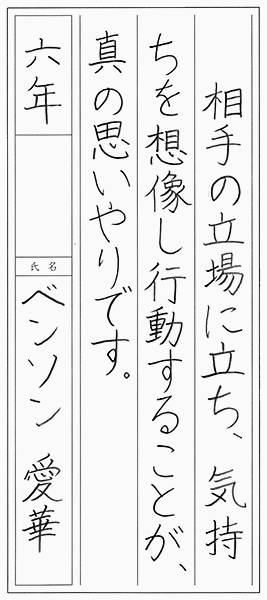 相手の立場に立ち、気持
ちを想像し行動することが、
真の思いやりです。
六年
氏名
ベンソン 愛華